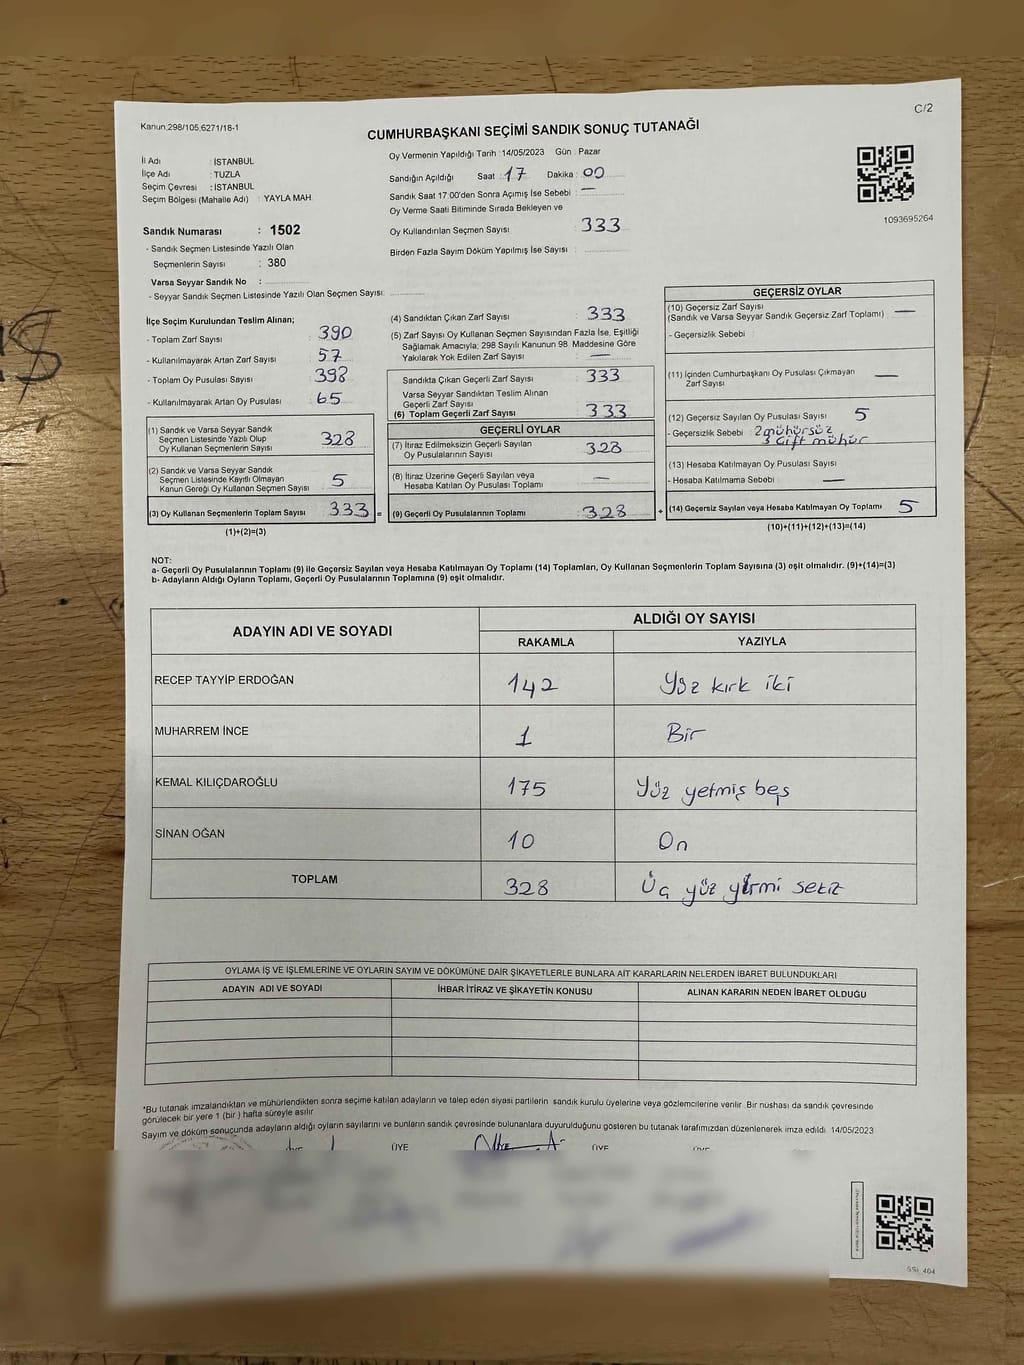 C/2
Kanun,298/105,6271/18-1
CUMHURBAŞKANI SEÇİMİ SANDIK SONUÇ TUTANAĞI
İl Adı : İSTANBUL
İlçe Adı : TUZLA
Seçim Çevresi : İSTANBUL
Seçim Bölgesi (Mahalle Adı) : YAYLA MAH
Sandık Numarası : 1502
- Sandık Seçmen Listesinde Yazılı Olan
Seçmenlerin Sayısı : 380
Varsa Seyyar Sandık No :
- Seyyar Sandık Seçmen Listesinde Yazılı Olan Seçmen Sayısı:
Oy Vermenin Yapıldığı Tarih :14/05/2023 Gün : Pazar
Sandığın Açıldığı Saat : 17 Dakika : 00
Sandık Saat 17:00'den Sonra Açımış İse Sebebi : —
Oy Verme Saati Bitiminde Sırada Bekleyen ve
Oy Kullandırılan Seçmen Sayısı : 333
Birden Fazla Sayım Döküm Yapılmış İse Sayısı :
1093695264
İlçe Seçim Kurulundan Teslim Alınan;
- Toplam Zarf Sayısı : 390
- Kullanılmayarak Artan Zarf Sayısı : 57
- Toplam Oy Pusulası Sayısı : 398
- Kullanılmayarak Artan Oy Pusulası : 65
(1) Sandık ve Varsa Seyyar Sandık
Seçmen Listesinde Yazılı Olup
Oy Kullanan Seçmenlerin Sayısı : 328
(2) Sandık ve Varsa Seyyar Sandık
Seçmen Listesinde Kayıtlı Olmayan
Kanun Gereği Oy Kullanan Seçmen Sayısı : 5
(3) Oy Kullanan Seçmenlerin Toplam Sayısı : 333 =
(1)+(2)=(3)
(4) Sandıktan Çıkan Zarf Sayısı : 333
(5) Zarf Sayısı Oy Kullanan Seçmen Sayısından Fazla İse, Eşitliği
Sağlamak Amacıyla; 298 Sayılı Kanunun 98. Maddesine Göre
Yakılarak Yok Edilen Zarf Sayısı : —
Sandıkta Çıkan Geçerli Zarf Sayısı : 333
Varsa Seyyar Sandıktan Teslim Alınan
Geçerli Zarf Sayısı :
(6) Toplam Geçerli Zarf Sayısı : 333
GEÇERLİ OYLAR
(7) İtiraz Edilmeksizin Geçerli Sayılan
Oy Pusulalarının Sayısı : 328
(8) İtiraz Üzerine Geçerli Sayılan veya
Hesaba Katılan Oy Pusulası Toplamı : —
(9) Geçerli Oy Pusulalarının Toplamı : 328 +
GEÇERSİZ OYLAR
(10) Geçersiz Zarf Sayısı
(Sandık ve Varsa Seyyar Sandık Geçersiz Zarf Toplamı) : —
- Geçersizlik Sebebi :
(11) İçinden Cumhurbaşkanı Oy Pusulası Çıkmayan
Zarf Sayısı : —
(12) Geçersiz Sayılan Oy Pusulası Sayısı : 5
- Geçersizlik Sebebi : 2 mühürsüz
3 Gift mühür
(13) Hesaba Katılmayan Oy Pusulası Sayısı :
- Hesaba Katılmama Sebebi : —
(14) Geçersiz Sayılan veya Hesaba Katılmayan Oy Toplamı : 5
(10)+(11)+(12)+(13)=(14)
NOT:
a- Geçerli Oy Pusulalarının Toplamı (9) ile Geçersiz Sayılan veya Hesaba Katılmayan Oy Toplamı (14) Toplamları, Oy Kullanan Seçmenlerin Toplam Sayısına (3) eşit olmalıdır. (9)+(14)=(3)
b- Adayların Aldığı Oyların Toplamı, Geçerli Oy Pusulalarının Toplamına (9) eşit olmalıdır.
ADAYIN ADI VE SOYADI ALDIĞI OY SAYISI
RAKAMLA YAZIYLA
RECEP TAYYİP ERDOĞAN 142 Yüz kırk iki
MUHARREM İNCE 1 Bir
KEMAL KILIÇDAROĞLU 175 Yüz yetmiş beş
SİNAN OĞAN 10 On
TOPLAM 328 Üç yüz yirmi sekiz
OYLAMA İŞ VE İŞLEMLERİNE VE OYLARIN SAYIM VE DÖKÜMÜNE DAİR ŞİKAYETLERLE BUNLARA AİT KARARLARIN NELERDEN İBARET BULUNDUKLARI
ADAYIN ADI VE SOYADI İHBAR İTİRAZ VE ŞİKAYETİN KONUSU ALINAN KARARIN NEDEN İBARET OLDUĞU
*Bu tutanak imzalandıktan ve mühürlendikten sonra seçime katılan adayların ve talep eden siyasi partilerin sandık kurulu üyelerine veya gözlemcilerine verilir. Bir nüshası da sandık çevresinde
görülecek bir yere 1 (bir) hafta süreyle asılır
Sayım ve döküm sonucunda adayların aldığı oyların sayılarını ve bunların sandık çevresinde bulunanlara duyurulduğunu gösteren bu tutanak tarafımızdan düzenlenerek imza edildi. 14/05/2023
ÜYE ÜYE